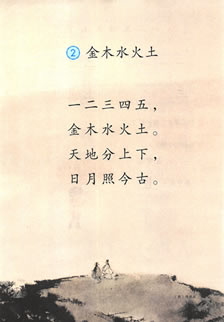 ② 金木水火土
一二三四五，
金木水火土。
天地分上下，
日月照今古。